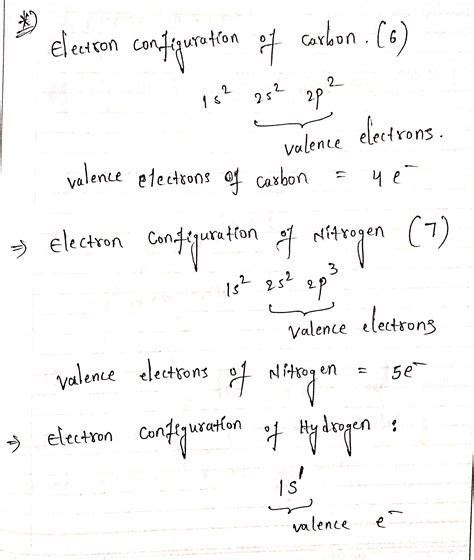 *)
Electron configuration of carbon. (6)
1s² 2s² 2p²
valence electrons.
valence electrons of carbon = 4e⁻
⇒ Electron configuration of Nitrogen (7)
1s² 2s² 2p³
valence electrons
valence electrons of Nitrogen = 5e⁻
⇒ Electron configuration of Hydrogen :
1s¹
valence e⁻